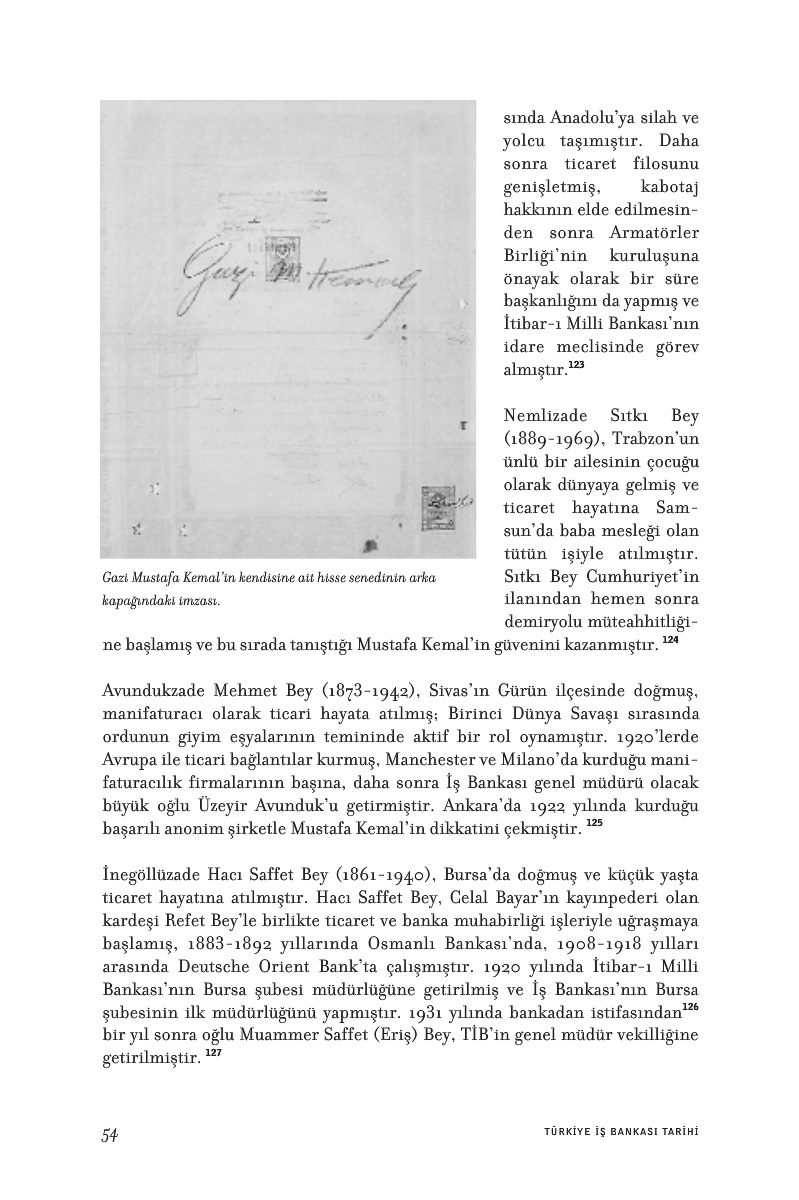 Gazi M. Kemal
Gazi Mustafa Kemal'in kendisine ait hisse senedinin arka
kapağındaki imzası.
sında Anadolu'ya silah ve
yolcu taşımıştır. Daha
sonra ticaret filosunu
genişletmiş, kabotaj
hakkının elde edilmesin-
den sonra Armatörler
Birliği'nin kuruluşuna
önayak olarak bir süre
başkanlığını da yapmış ve
İtibar-ı Milli Bankası'nın
idare meclisinde görev
almıştır.123
Nemlizade Sıtkı Bey
(1889-1969), Trabzon'un
ünlü bir ailesinin çocuğu
olarak dünyaya gelmiş ve
ticaret hayatına Sam-
sun'da baba mesleği olan
tütün işiyle atılmıştır.
Sıtkı Bey Cumhuriyet'in
ilanından hemen sonra
demiryolu müteahhitliği-
ne başlamış ve bu sırada tanıştığı Mustafa Kemal'in güvenini kazanmıştır. 124
Avundukzade Mehmet Bey (1873-1942), Sivas'ın Gürün ilçesinde doğmuş,
manifaturacı olarak ticari hayata atılmış; Birinci Dünya Savaşı sırasında
ordunun giyim eşyalarının temininde aktif bir rol oynamıştır. 1920'lerde
Avrupa ile ticari bağlantılar kurmuş, Manchester ve Milano'da kurduğu mani-
faturacılık firmalarının başına, daha sonra İş Bankası genel müdürü olacak
büyük oğlu Üzeyir Avunduk'u getirmiştir. Ankara'da 1922 yılında kurduğu
başarılı anonim şirketle Mustafa Kemal'in dikkatini çekmiştir. 125
İnegöllüzade Hacı Saffet Bey (1861-1940), Bursa'da doğmuş ve küçük yaşta
ticaret hayatına atılmıştır. Hacı Saffet Bey, Celal Bayar'ın kayınpederi olan
kardeşi Refet Bey'le birlikte ticaret ve banka muhabirliği işleriyle uğraşmaya
başlamış, 1883-1892 yıllarında Osmanlı Bankası'nda, 1908-1918 yılları
arasında Deutsche Orient Bank'ta çalışmıştır. 1920 yılında İtibar-ı Milli
Bankası'nın Bursa şubesi müdürlüğüne getirilmiş ve İş Bankası'nın Bursa
şubesinin ilk müdürlüğünü yapmıştır. 1931 yılında bankadan istifasından126
bir yıl sonra oğlu Muammer Saffet (Eriş) Bey, TİB'in genel müdür vekilliğine
getirilmiştir. 127
54
TÜRKİYE İŞ BANKASI TARİHİ